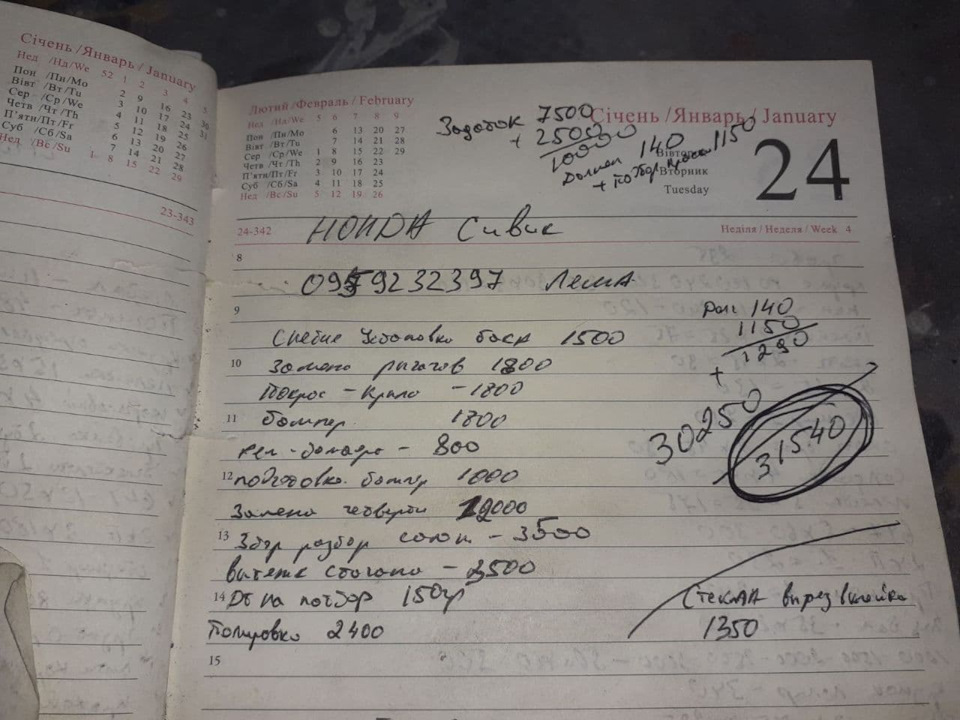 Січень / Январь / January
Нед /Нд/We 52 1 2 3 4 5
Пон /Пн/Mo 2 9 16 23 30
Вівт /Вт/Tu 3 10 17 24 31
Сер /Ср/We 4 11 18 25
Четв /Чт/Th 5 12 19 26
П'яти/Пт/Fr 6 13 20 27
Суб /Сб/Sa 7 14 21 28
Нед /Вс/Su 1 8 15 22 29
23-343
Лютий /Февраль / February
Нед /Нд/We 5 6 7 8 9
Пон /Пн/Mo 6 13 20 27
Вівт /Вт/Tu 7 14 21 28
Сер /Ср/We 1 8 15 22 29
Четв /Чт/Th 2 9 16 23
П'яти/Пт/Fr 3 10 17 24
Суб /Сб/Sa 4 11 18 25
Нед /Вс/Su 5 12 19 26
Січень /Январь / January
Вівторок
Вторник
Tuesday
24
Неділя / Неделя / Week 4
Задаток 7500
+ 2500
10000
Должен 140
+ 1150
24-342
HONDA Сивик
8
0979232397 Леша
9
Снятие Установка бока 1500
Долг 140
1150
+ 1290
10
Замена рычагов 1800
Покрас - Крыло - 1800
11
бампер 1800
рем - бампера - 800
30250
31540
12
подготовка бампер 1000
Замена четверти 12000
13
Збор розбор салон - 3500
вытяжка стакана - 2500
14
на подбор 150гр
Стекла вырез вклейка
1350
Полировка 2400
15